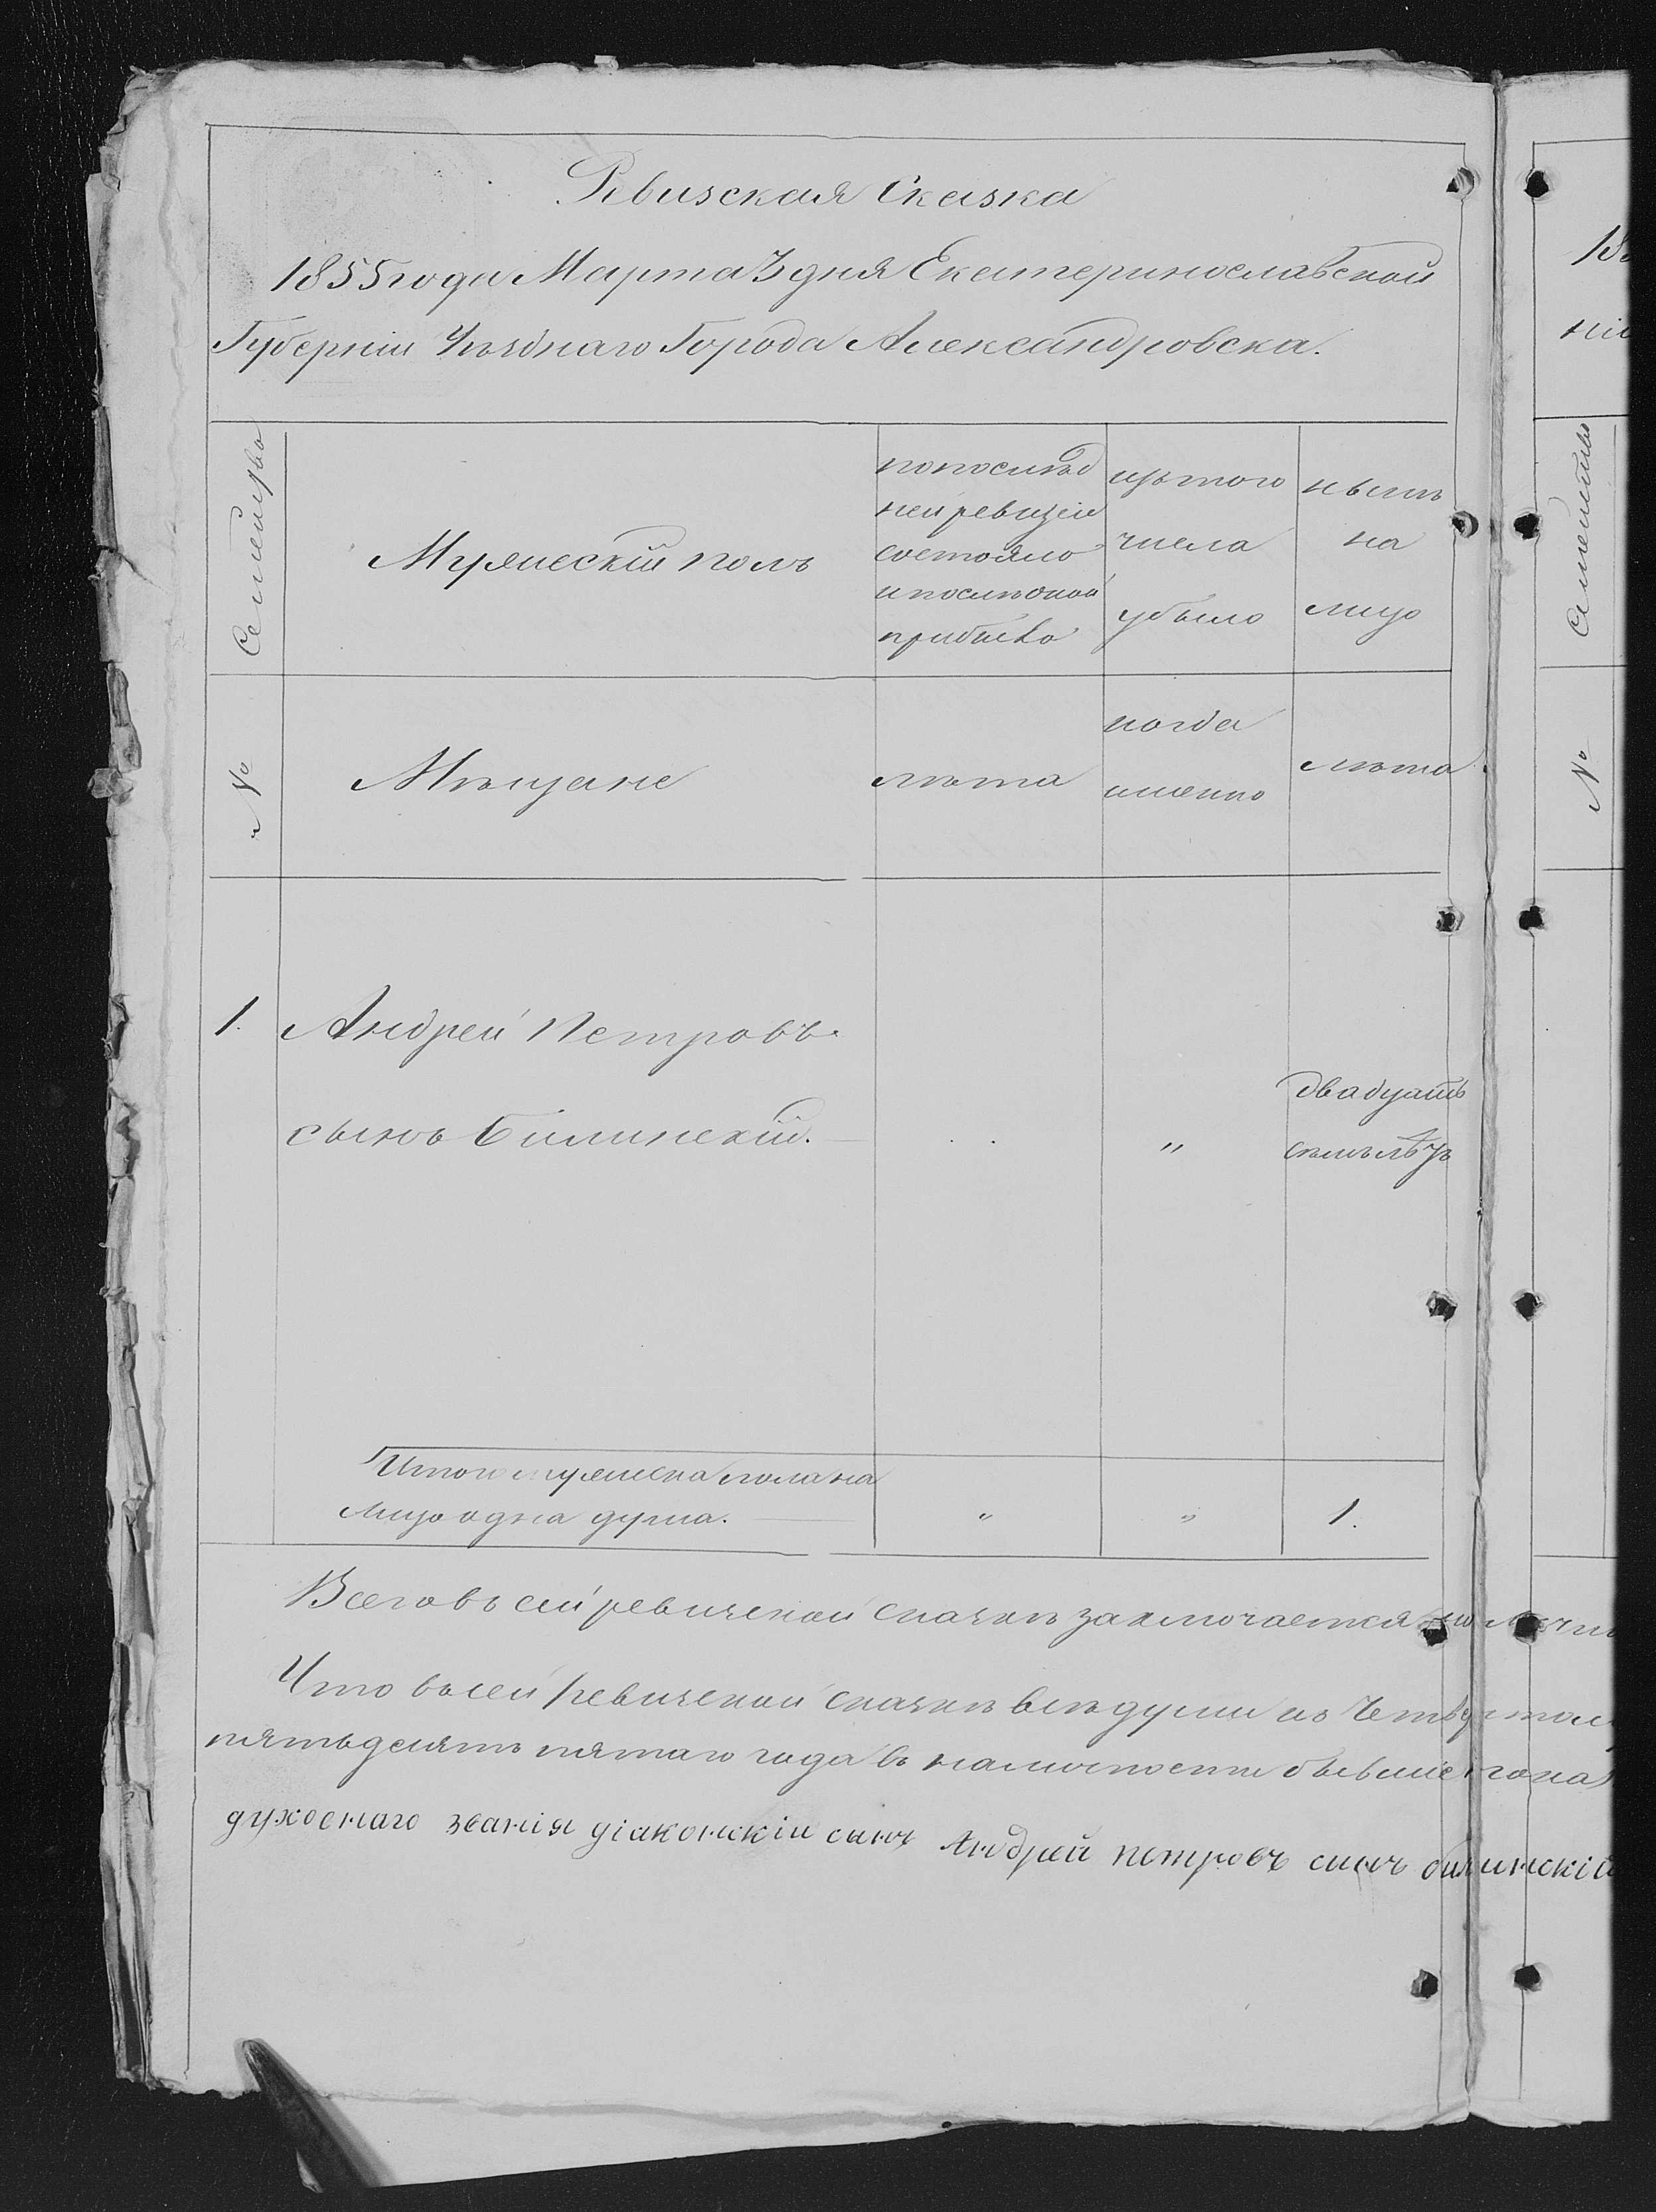 Ревизская Сказка
1855 года Марта 3 дня Екатеринославской
Губернии Уѣзднаго Города Александровска.
Семейство
Мужескій полъ
попослѣд
ней ревизіи
состояло
и послѣ оной
прибыло
изъ того
числа
убыло
нынѣ
на
лицо
Семейство
№
Мѣщане
лѣта
когда
именно
лѣта
№
1.
Андрей Петровъ
сынъ Билинскій.
"
двадцать
семь лѣтъ
Итого мужеска пола на
лицо одна душа.
"
"
1.
Всего въ сей ревизской сказкѣ заключается
Что въ сей ревизской сказкѣ всѣ души
пятьдесятъ пятаго года въ наличности бывшіе
духовнаго званія діаконскій сынъ Андрей петровъ синъ билинскій